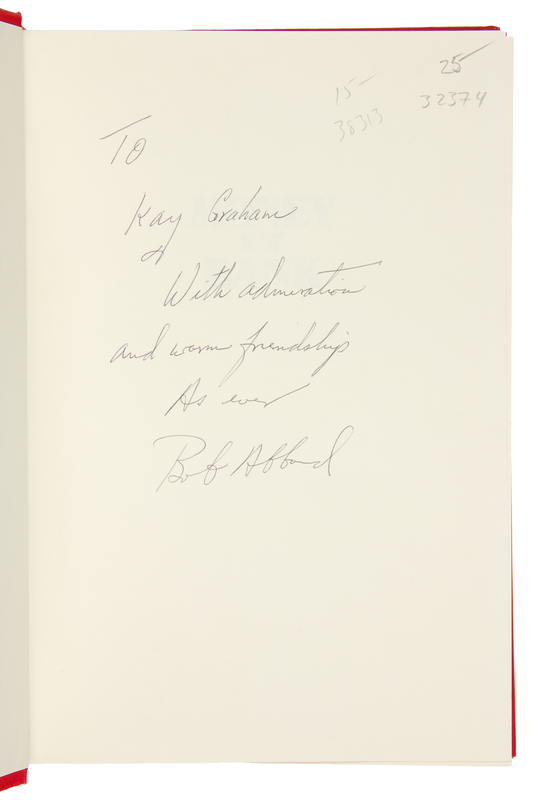 25
15-
32374
38313
TO
Kay Graham
With admiration
and warm friendship
As ever
Bob Abboud